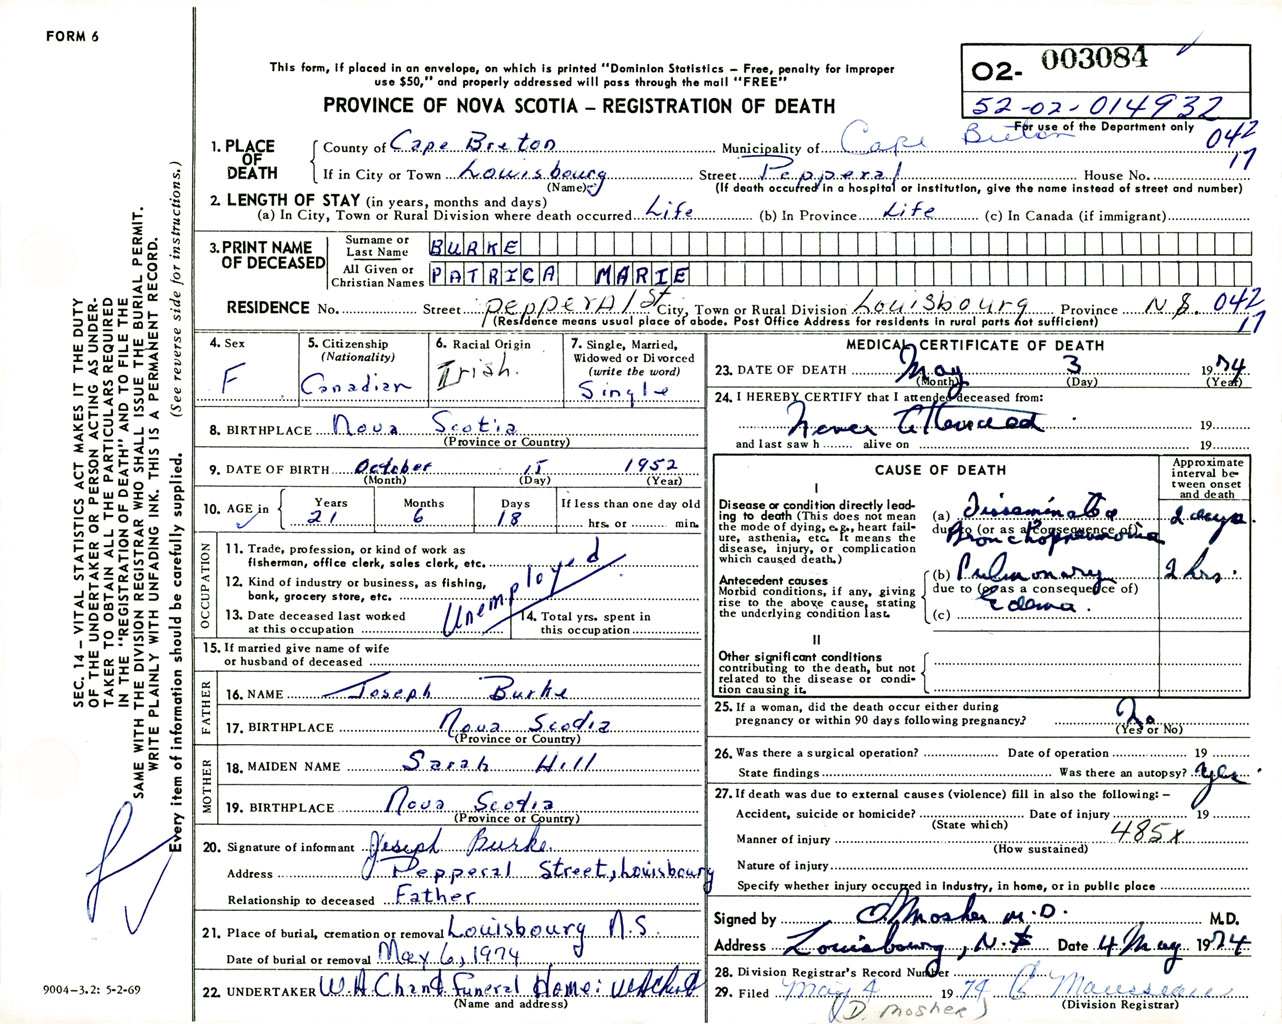 FORM 6
This form, if placed in an envelope, on which is printed "Dominion Statistics – Free, penalty for improper
use $50," and properly addressed will pass through the mail "FREE"
PROVINCE OF NOVA SCOTIA – REGISTRATION OF DEATH
O2- 003084
52-02-014932
For use of the Department only
042
17
1. PLACE OF DEATH
County of Cape Breton Municipality of Cape Breton
If in City or Town Louisbourg Street Pepperal House No.
(Name) (If death occurred in a hospital or institution, give the name instead of street and number)
2. LENGTH OF STAY (in years, months and days)
(a) In City, Town or Rural Division where death occurred Life (b) In Province Life (c) In Canada (if immigrant)
3. PRINT NAME OF DECEASED
Surname or Last Name BURKE
All Given or Christian Names PATRICA MARIE
RESIDENCE No. Street PEPPERAl St City, Town or Rural Division Louisbourg Province N.S. 042
(Residence means usual place of abode. Post Office Address for residents in rural parts not sufficient) 17
4. Sex F
5. Citizenship (Nationality) Canadian
6. Racial Origin Irish.
7. Single, Married, Widowed or Divorced (write the word) Single
8. BIRTHPLACE Nova Scotia
(Province or Country)
9. DATE OF BIRTH October 15 1952
(Month) (Day) (Year)
10. AGE in Years 21 Months 6 Days 18 If less than one day old hrs. or min.
OCCUPATION
11. Trade, profession, or kind of work as
fisherman, office clerk, sales clerk, etc.
12. Kind of industry or business, as fishing,
bank, grocery store, etc.
Unemployed
13. Date deceased last worked
at this occupation
14. Total yrs. spent in
this occupation
15. If married give name of wife
or husband of deceased
FATHER
16. NAME Joseph Burke
17. BIRTHPLACE Nova Scodia
(Province or Country)
MOTHER
18. MAIDEN NAME Sarah Hill
19. BIRTHPLACE Nova Scodia
(Province or Country)
20. Signature of informant Joseph Burke
Address Pepperal Street, Louisbourg
Relationship to deceased Father
21. Place of burial, cremation or removal Louisbourg N.S.
Date of burial or removal May 6, 1974
22. UNDERTAKER W.A Chant Funeral Home:
(Name and address)
MEDICAL CERTIFICATE OF DEATH
23. DATE OF DEATH May 3 1974
(Month) (Day) (Year)
24. I HEREBY CERTIFY that I attended deceased from:
Never Attended 19
and last saw h alive on 19
CAUSE OF DEATH
Approximate interval between onset and death
I
Disease or condition directly lead-
ing to death (This does not mean
the mode of dying, e.g., heart fail-
ure, asthenia, etc. It means the
disease, injury, or complication
which caused death.)
(a) Disseminated 2 days.
due to (or as a consequence of)
Bronchopneumonia
Antecedent causes
Morbid conditions, if any, giving
rise to the above cause, stating
the underlying condition last.
(b) Pulmonary 2 hrs.
due to (or as a consequence of)
Edema.
(c)
II
Other significant conditions
contributing to the death, but not
related to the disease or condi-
tion causing it.
25. If a woman, did the death occur either during
pregnancy or within 90 days following pregnancy? No
(Yes or No)
26. Was there a surgical operation? Date of operation 19
State findings Was there an autopsy? Yes
27. If death was due to external causes (violence) fill in also the following: –
Accident, suicide or homicide? Date of injury 19
(State which)
Manner of injury 485x
(How sustained)
Nature of injury
Specify whether injury occurred in industry, in home, or in public place
Signed by Mosher M.D. M.D.
Address Louisbourg, N.S Date 4 May 1974
28. Division Registrar's Record Number
29. Filed May 4 1974
(Division Registrar)
(D. Mosher)
SEC. 14 – VITAL STATISTICS ACT MAKES IT THE DUTY
OF THE UNDERTAKER OR PERSON ACTING AS UNDER-
TAKER TO OBTAIN ALL THE PARTICULARS REQUIRED
IN THE "REGISTRATION OF DEATH" AND TO FILE THE
SAME WITH THE DIVISION REGISTRAR WHO SHALL ISSUE THE BURIAL PERMIT.
WRITE PLAINLY WITH UNFADING INK. THIS IS A PERMANENT RECORD.
Every item of information should be carefully supplied. (See reverse side for instructions.)
9004-3.2: 5-2-69